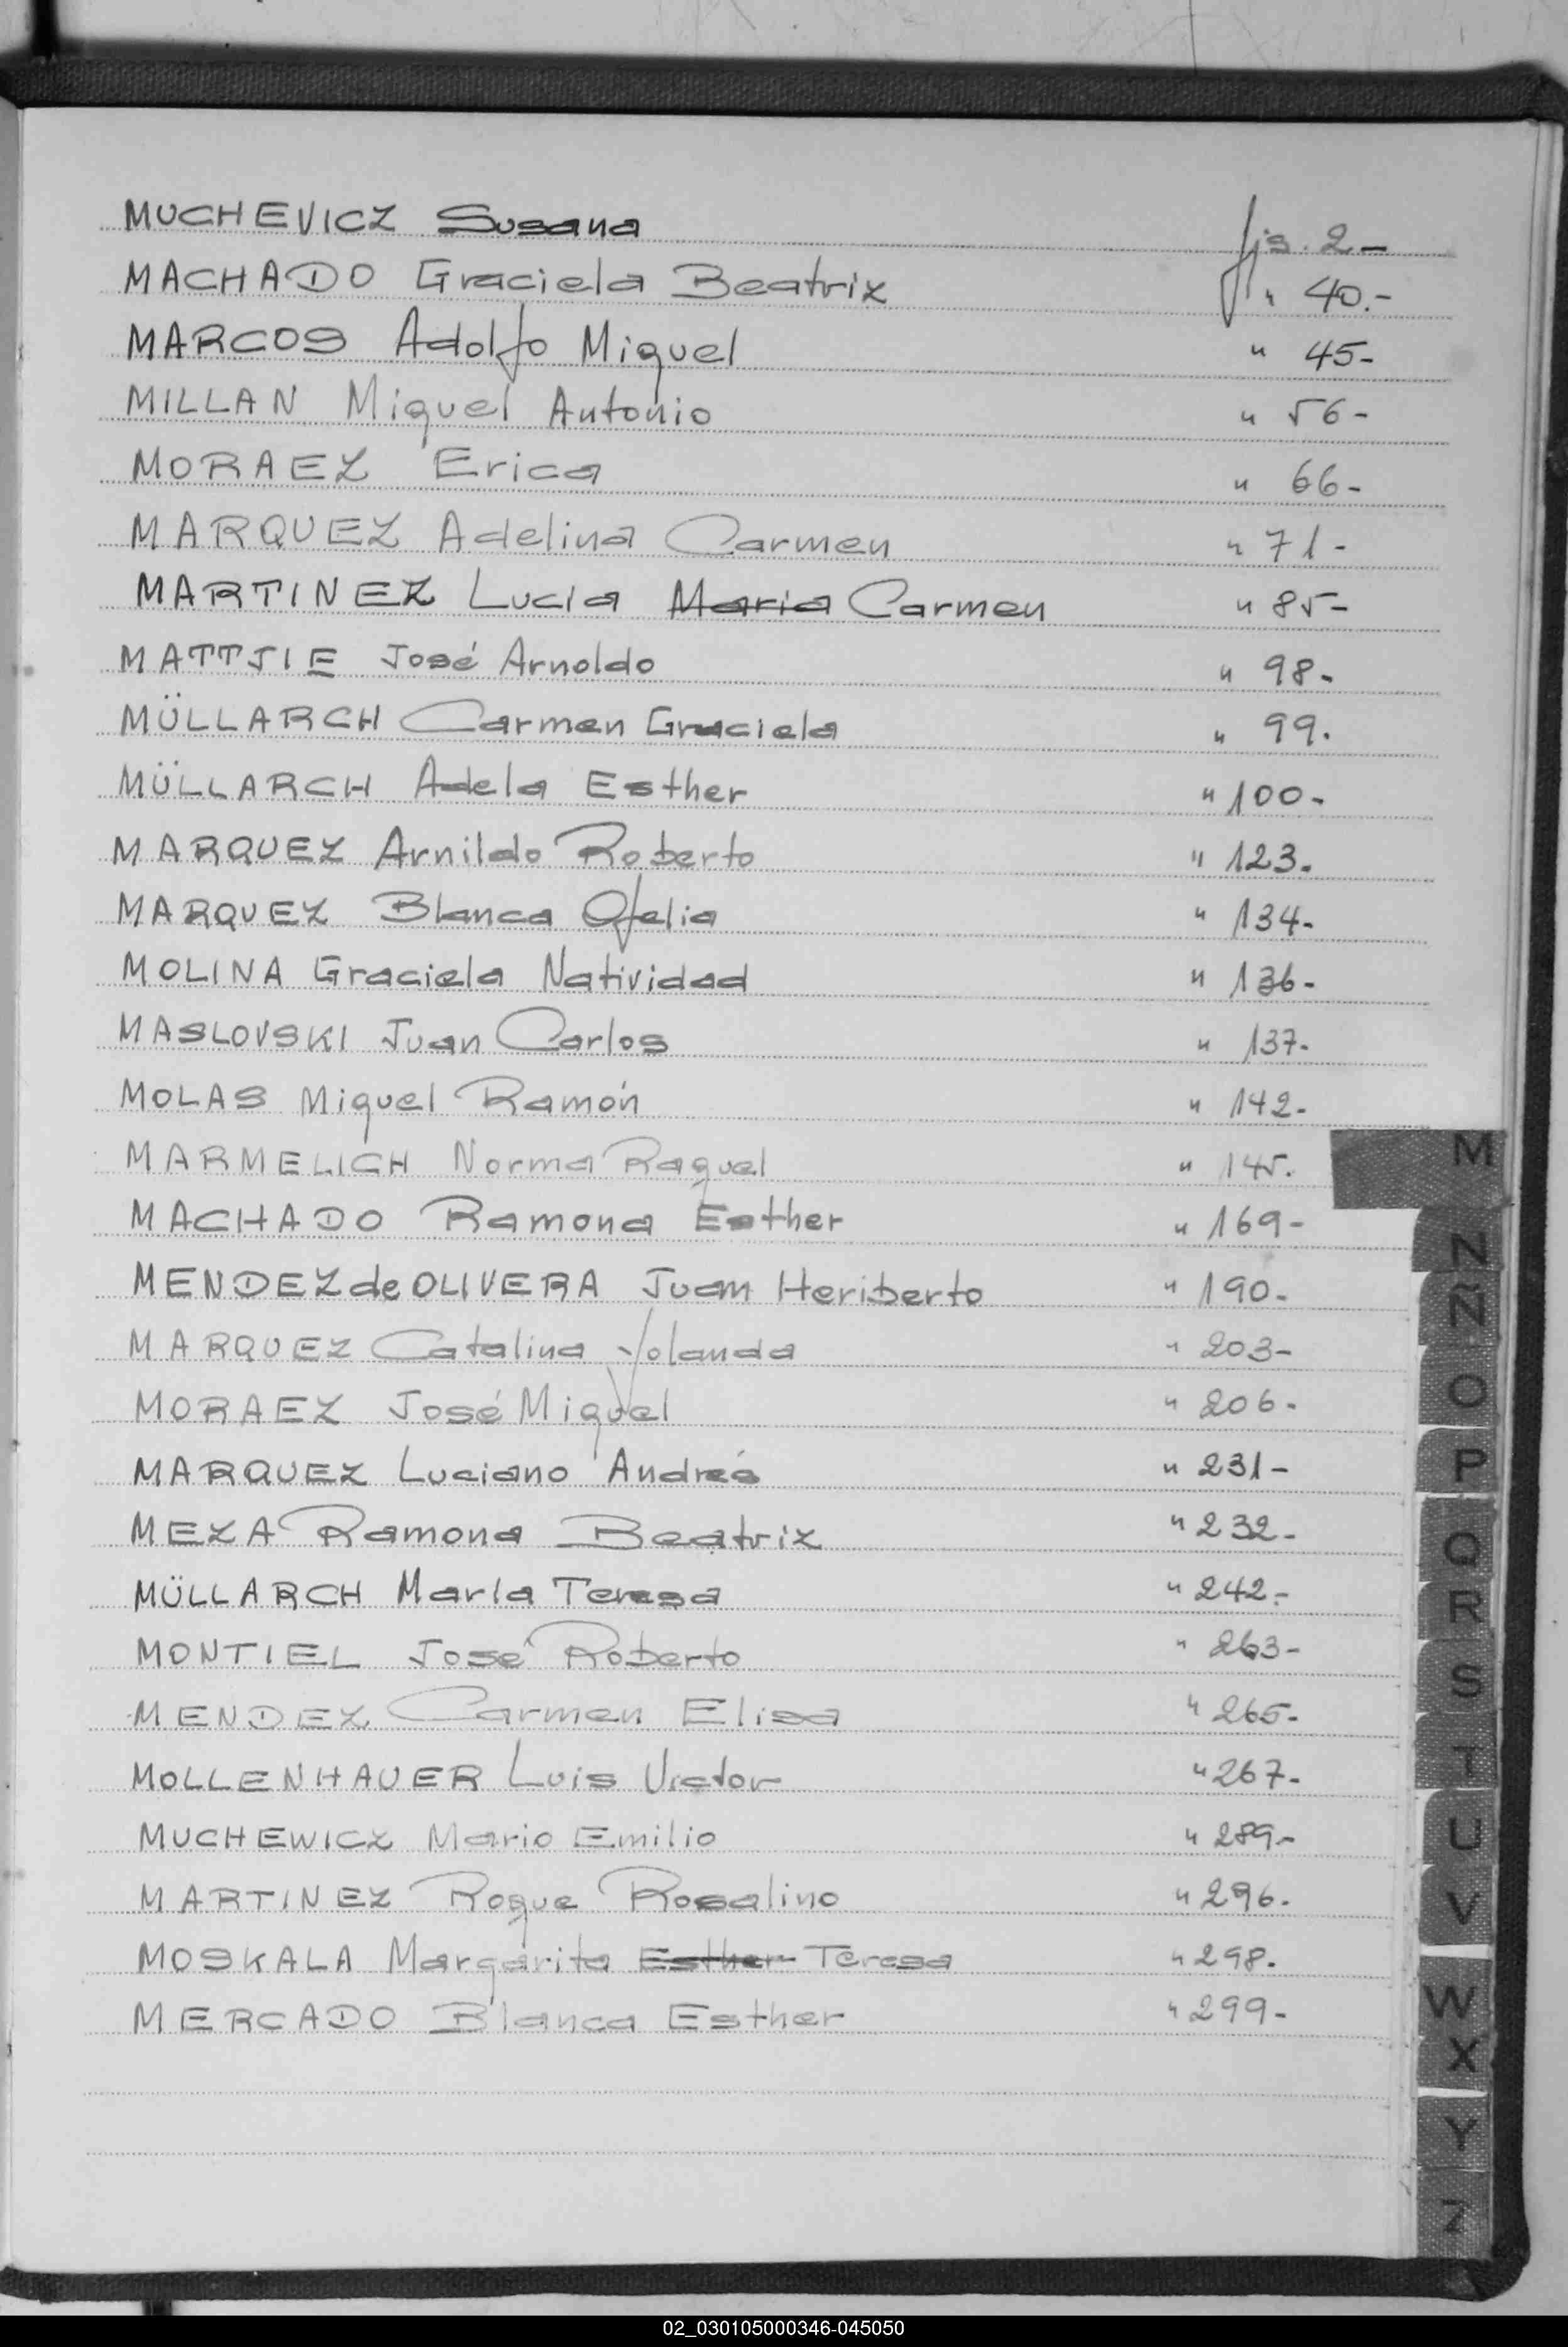 MUCHEVICZ Susana fjs. 2-
MACHADO Graciela Beatriz " 40.-
MARCOS Adolfo Miguel " 45-
MILLAN Miguel Antonio " 56-
MORAEZ Erica " 66-
MARQUEZ Adelina Carmen " 71-
MARTINEZ Lucia Maria Carmen " 85-
MATTJIE José Arnoldo " 98-
MÜLLARCH Carmen Graciela " 99.
MÜLLARCH Adela Esther " 100-
MARQUEZ Arnildo Roberto " 123-
MARQUEZ Blanca Ofelia " 134-
MOLINA Graciela Natividad " 136-
MASLOVSKI Juan Carlos " 137-
MOLAS Miguel Ramón " 142-
MARMELICH Norma Raquel " 145.
MACHADO Ramona Esther " 169-
MENDEZ de OLIVERA Juan Heriberto " 190-
MARQUEZ Catalina Yolanda " 203-
MORAEZ José Miguel " 206-
MARQUEZ Luciano Andrés " 231-
MEZA Ramona Beatriz " 232-
MÜLLARCH María Teresa " 242.-
MONTIEL José Roberto " 263-
MENDEZ Carmen Elisa " 265-
MOLLENHAUER Luis Victor " 267-
MUCHEWICZ Mario Emilio " 289.-
MARTINEZ Roque Rosalino " 296-
MOSKALA Margarita Esther Teresa " 298.
MERCADO Blanca Esther " 299-
M
N
Ñ
O
P
Q
R
S
T
U
V
W
X
Y
Z
02_030105000346-045050